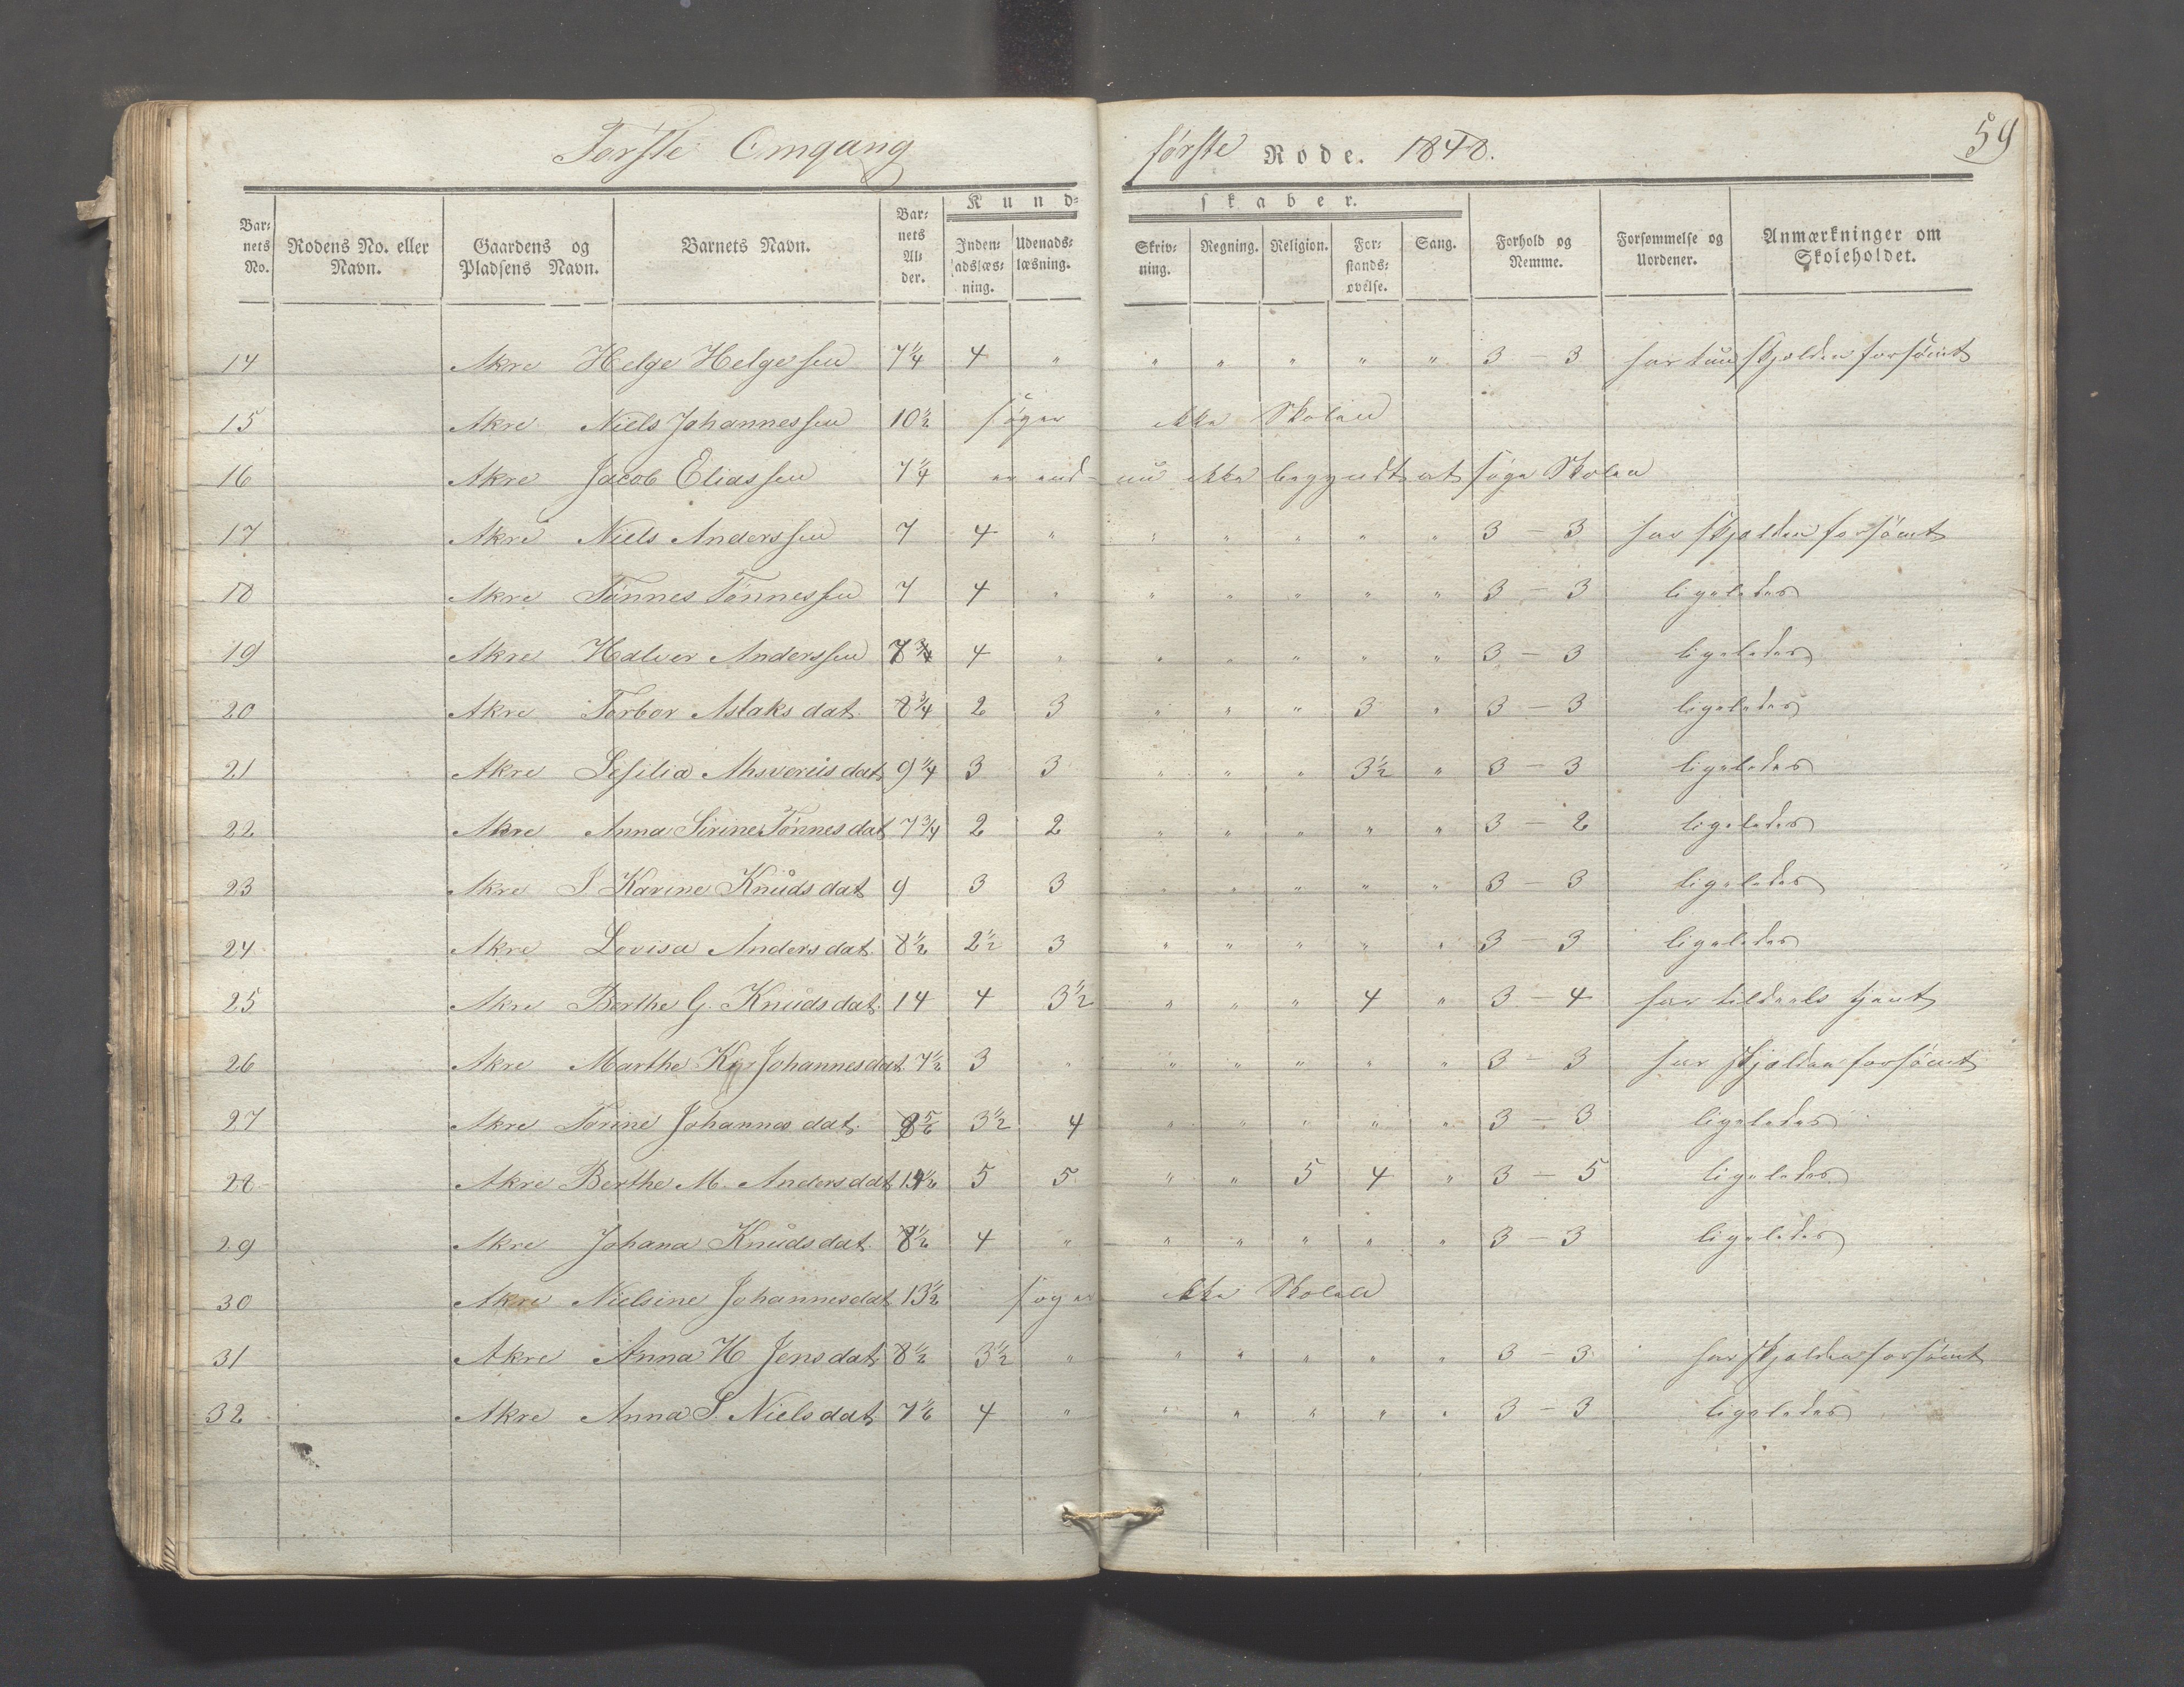 Første Omgang første Rode. 1848. 59
Kundskaber.
Barnets No. Rodens No. eller Navn. Gaardens og Pladsens Navn. Barnets Navn. Barnets Alder. Indenadslæsning. Udenadslæsning. Skrivning. Regning. Religion. Forstandsøvelse. Sang. Forhold og Nemme. Forsømmelse og Uordener. Anmærkninger om Skoleholdet.
14 Akre Helge Helgesen 7 1/4 4 " " " " " " 3 - 3 har kun skjelden forsømt
15 Akre Niels Johannessen 10 1/2 søger ikke Skolen
16 Akre Jacob Eliassen 7 1/4 er endnu ikke begyndt at søge Skolen
17 Akre Niels Anderssen 7 4 " " " " " " 3 - 3 har skjelden forsømt
18 Akre Tønnes Tønnessen 7 4 " " " " " " 3 - 3 ligeledes
19 Akre Halver Anderssen 4 " " " " " " 3 - 3 ligeledes
20 Akre Torbor Aslaksdat. 8 3/4 2 3 " " " 3 " 3 - 3 ligeledes
21 Akre Sesilia Ahsverusdat 9 1/4 3 3 " " " 3 1/2 " 3 - 3 ligeledes
22 Akre Anna Sirine Tønnesdat 7 3/4 2 2 " " " " " 3 - 2 ligeledes
23 Akre Karine Knudsdat 9 3 3 " " " " " 3 - 3 ligeledes
24 Akre Lovisa Andersdat. 8 1/2 2 1/2 3 " " " " " 3 - 3 ligeledes
25 Akre Berthe G. Knudsdat. 14 4 3 1/2 " " " 4 " 3 - 4 har tildeels tjent
26 Akre Marthe Johannesdat 7 1/2 3 " " " " " " 3 - 3 har skjelden forsømt
27 Akre Torine Johannesdat. 3 1/2 4 " " " " " 3 - 3 ligeledes
28 Akre Berthe M. Andersdat 5 5 " " 5 4 " 3 - 5 ligeledes
29 Akre Johana Knudsdat. 4 " " " " " " 3 - 3 ligeledes
30 Akre Nielsine Johannesdat 13 1/2 søger ikke Skolen
31 Akre Anna H Jensdat 8 1/2 3 1/2 " " " " " " 3 - 3 har skjelden forsømt
32 Akre Anna S. Nielsdat 7 1/6 4 " " " " " " 3 - 3 ligeledes